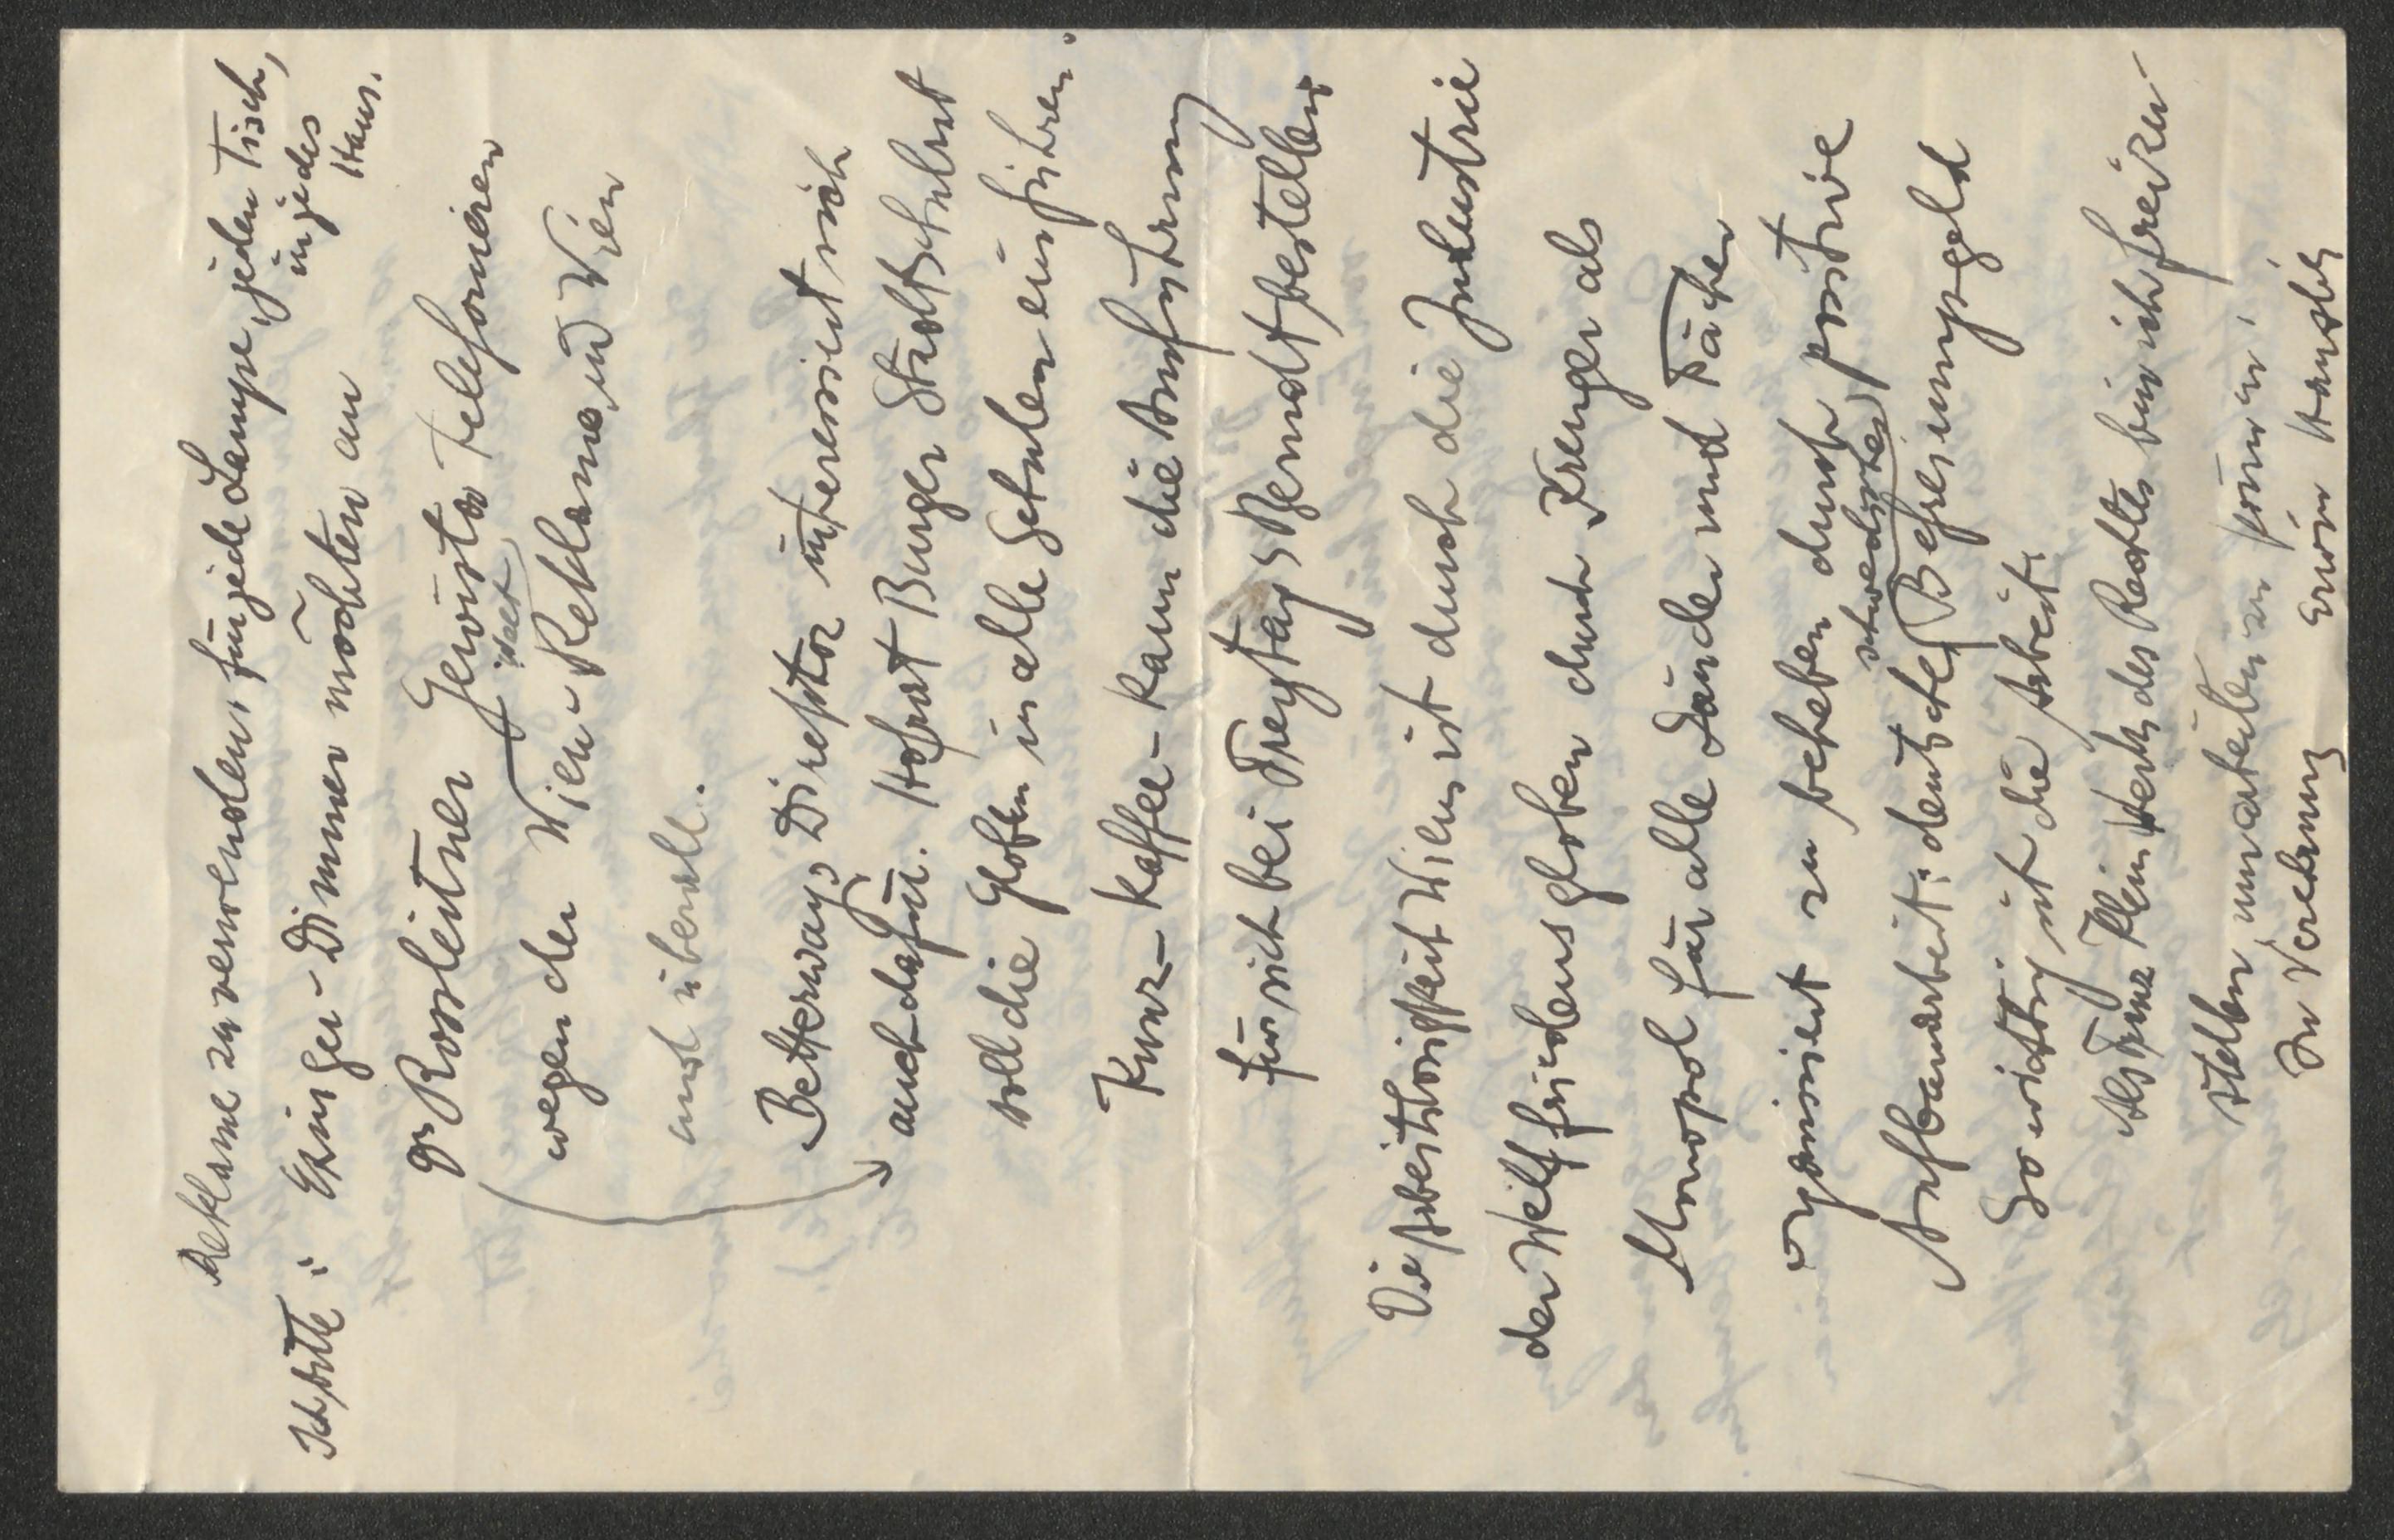 Reklame zu verwenden, für jede Lampe, jeden Tisch,
in jedes
Haus.
Ich bitte: Exinger-Dimmer möchten an
Dr Rossleitner Gewista telefonieren
wegen der Wien-Reklame, in Wien
und überall.
Betterways Direktor interessiert sich
auch dafür. Hofrat Burger Stadtschulrat
soll die Globen in alle Schulen einführen.
Kunz-Kaffee-kann die Ausführung
für sich bei Freytag & Berndt bestellen
Die Arbeitslosigkeit Wiens ist durch die Industrie
der Weltfriedensgloben durch Kreuger als
Monopol für alle Länder und Fächer
organisiert zu beheben durch positive
schwedisches
Aufbauarbeit: deutsches Befreiungsgeld
So wichtig ist die Arbeit.
Als Franz Klein Werk des Rechtes bin ich frei zu
stellen, um arbeiten zu können!
In Verehrung Erwin Hanslik